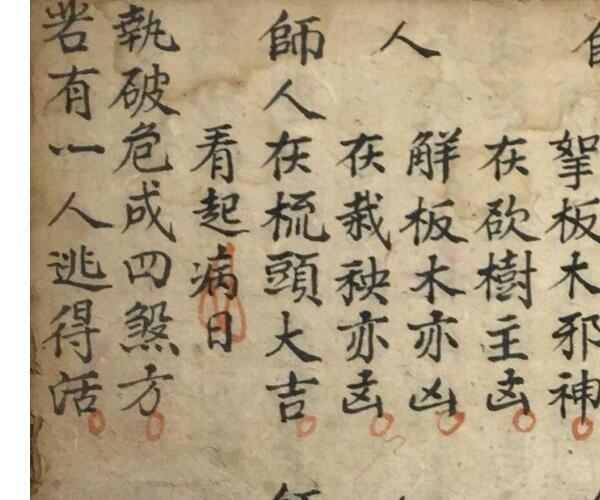 板木邪神
在砍樹主凶
人觧板木亦凶
在栽秧亦凶
師人在梳頭大吉
看起病日
執破危成四煞方
若有一人逃得活